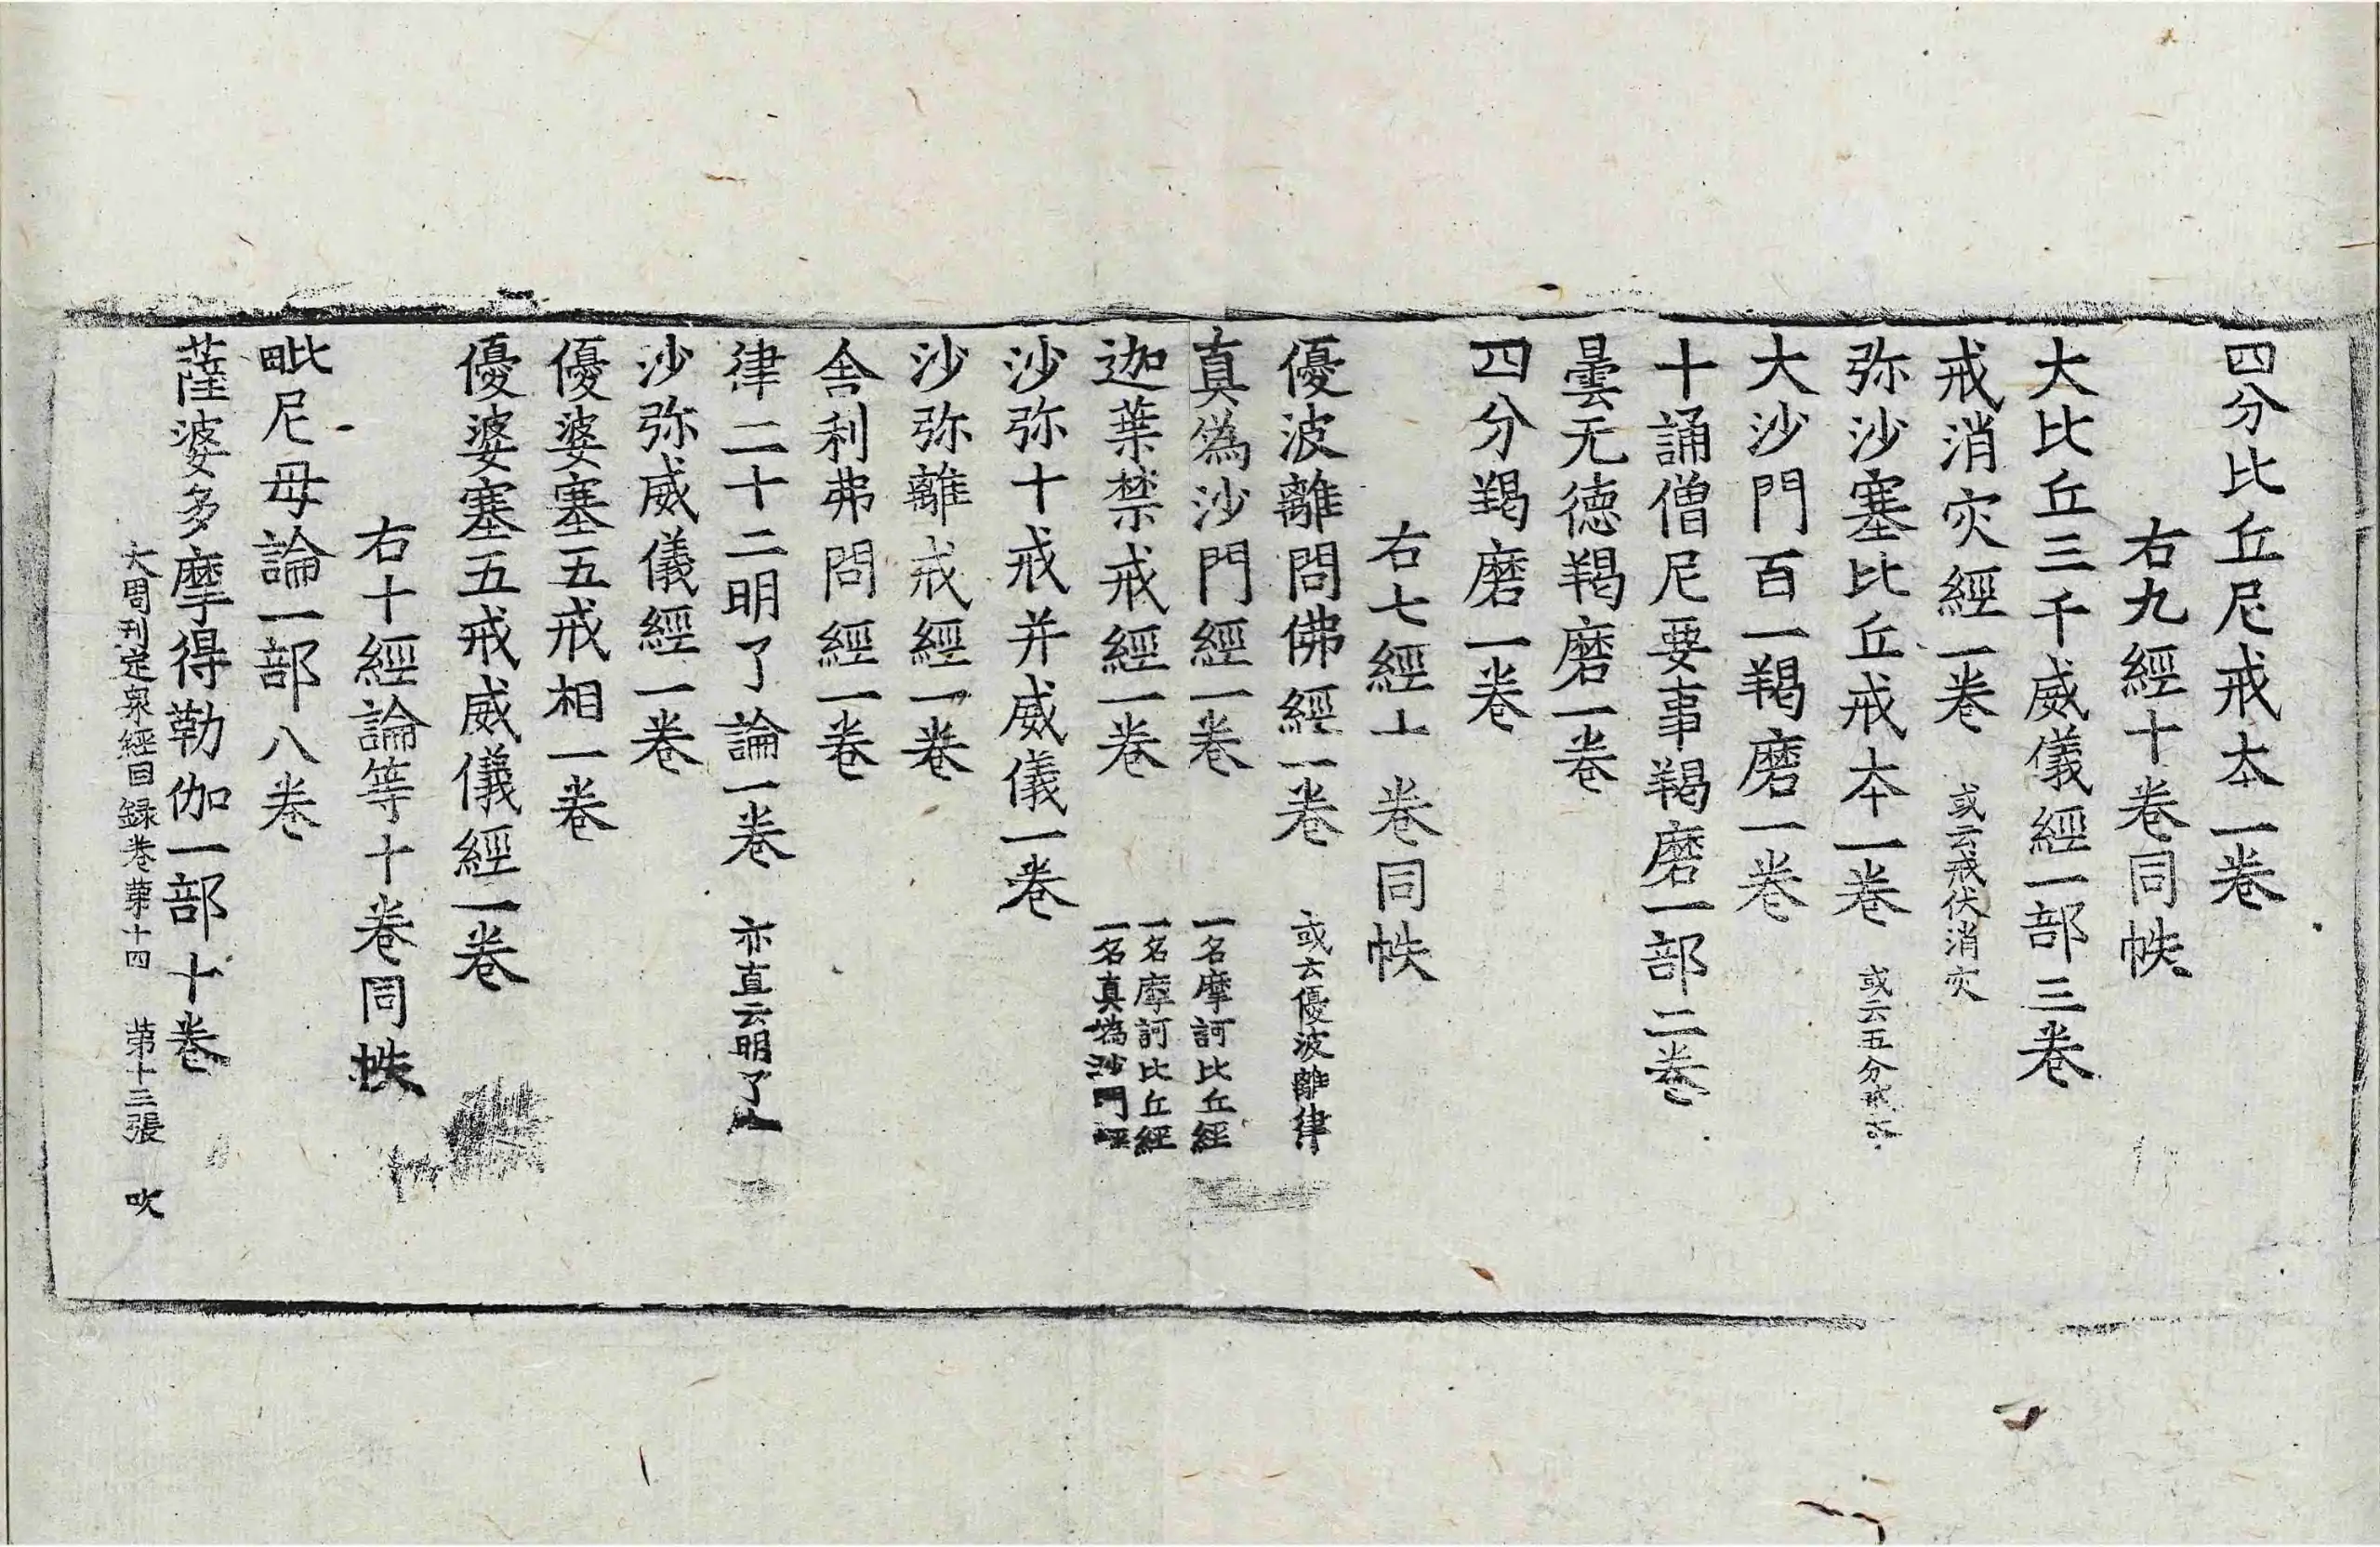 四分比丘尼戒夲一卷
右九經十卷同帙
大比丘三千威儀經一部三卷
戒消灾經一卷 或云戒伏消灾
弥沙塞比丘戒夲一卷 或云五分戒夲
大沙門百一羯磨一卷
十誦僧尼要事羯磨一部二卷
曇无德羯磨一卷
四分羯磨一卷
右七經 卷同帙
優波離問佛經一卷 或云優波離律
真僞沙門經一卷 一名摩訶比丘經
迦葉禁戒經一卷 一名摩訶比丘經
一名真僞沙門經
沙弥十戒并威儀一卷
沙弥離戒經一卷
舍利弗問經一卷
律二十二明了論一卷 亦直云明了
沙弥威儀經一卷
優婆塞五戒相一卷
優婆塞五戒威儀經一卷
右十經論等十卷同帙
毗尼母論一部八卷
薩婆多摩得勒伽一部十卷
大周刊定衆經目録卷苐十四 苐十三張 吹